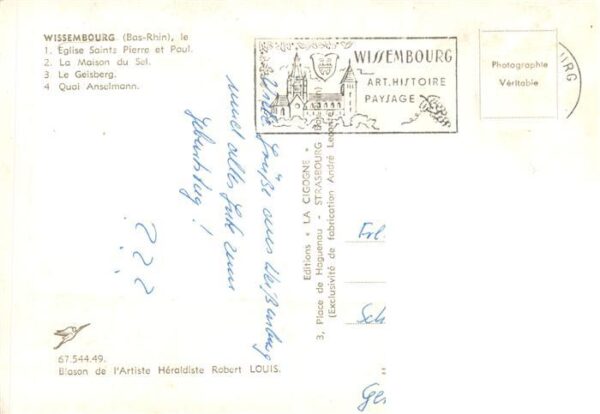 WISSEMBOURG (Bas-Rhin), le
1. Eglise Saints Pierre et Paul.
2. La Maison du Sel.
3 Le Geisberg.
4 Quai Anselmann.
WISSEMBOURG
ART. HISTOIRE
PAYSAGE
Photographie
Véritable
BOURG
Viele Grüße aus Weißenburg
und alles Gute zum
Geburtstag !
? ? ?
Editions « LA CIGOGNE »
3, Place de Haguenau - STRASBOURG
(Exclusivité de fabrication André Leconte)
Frl.
Sch
Ger
67.544.49.
Blason de l'Artiste Héraldiste Robert LOUIS.